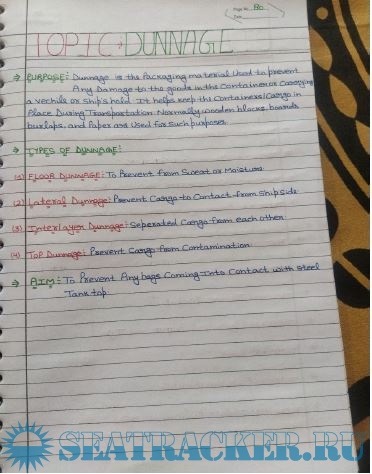 Page No. 80
Date
TOPIC → DUNNAGE
→ PURPOSE: Dunnage is the Packaging material Used to prevent
Any Damage to the goods in the Container or Carrying
a vechile or ship's hold. It helps keep the Containers/Cargo in
Place During Transportation. Normally wooden blocks, boards
burlaps, and Paper are Used for Such purposes.
→ TYPES OF DUNNAGE:
(1) FLOOR DUNNAGE: To Prevent from Sweat or Moisture.
(2) Lateral Dunnage: Prevent Cargo to Contact from Ship side
(3) Interlayer Dunnage: Seperated Cargo from each other.
(4) Top Dunnage: Prevent Cargo from Contamination.
→ AIM: To Prevent Any bags Coming Into Contact with steel
Tank top.
SEATRACKER.RU